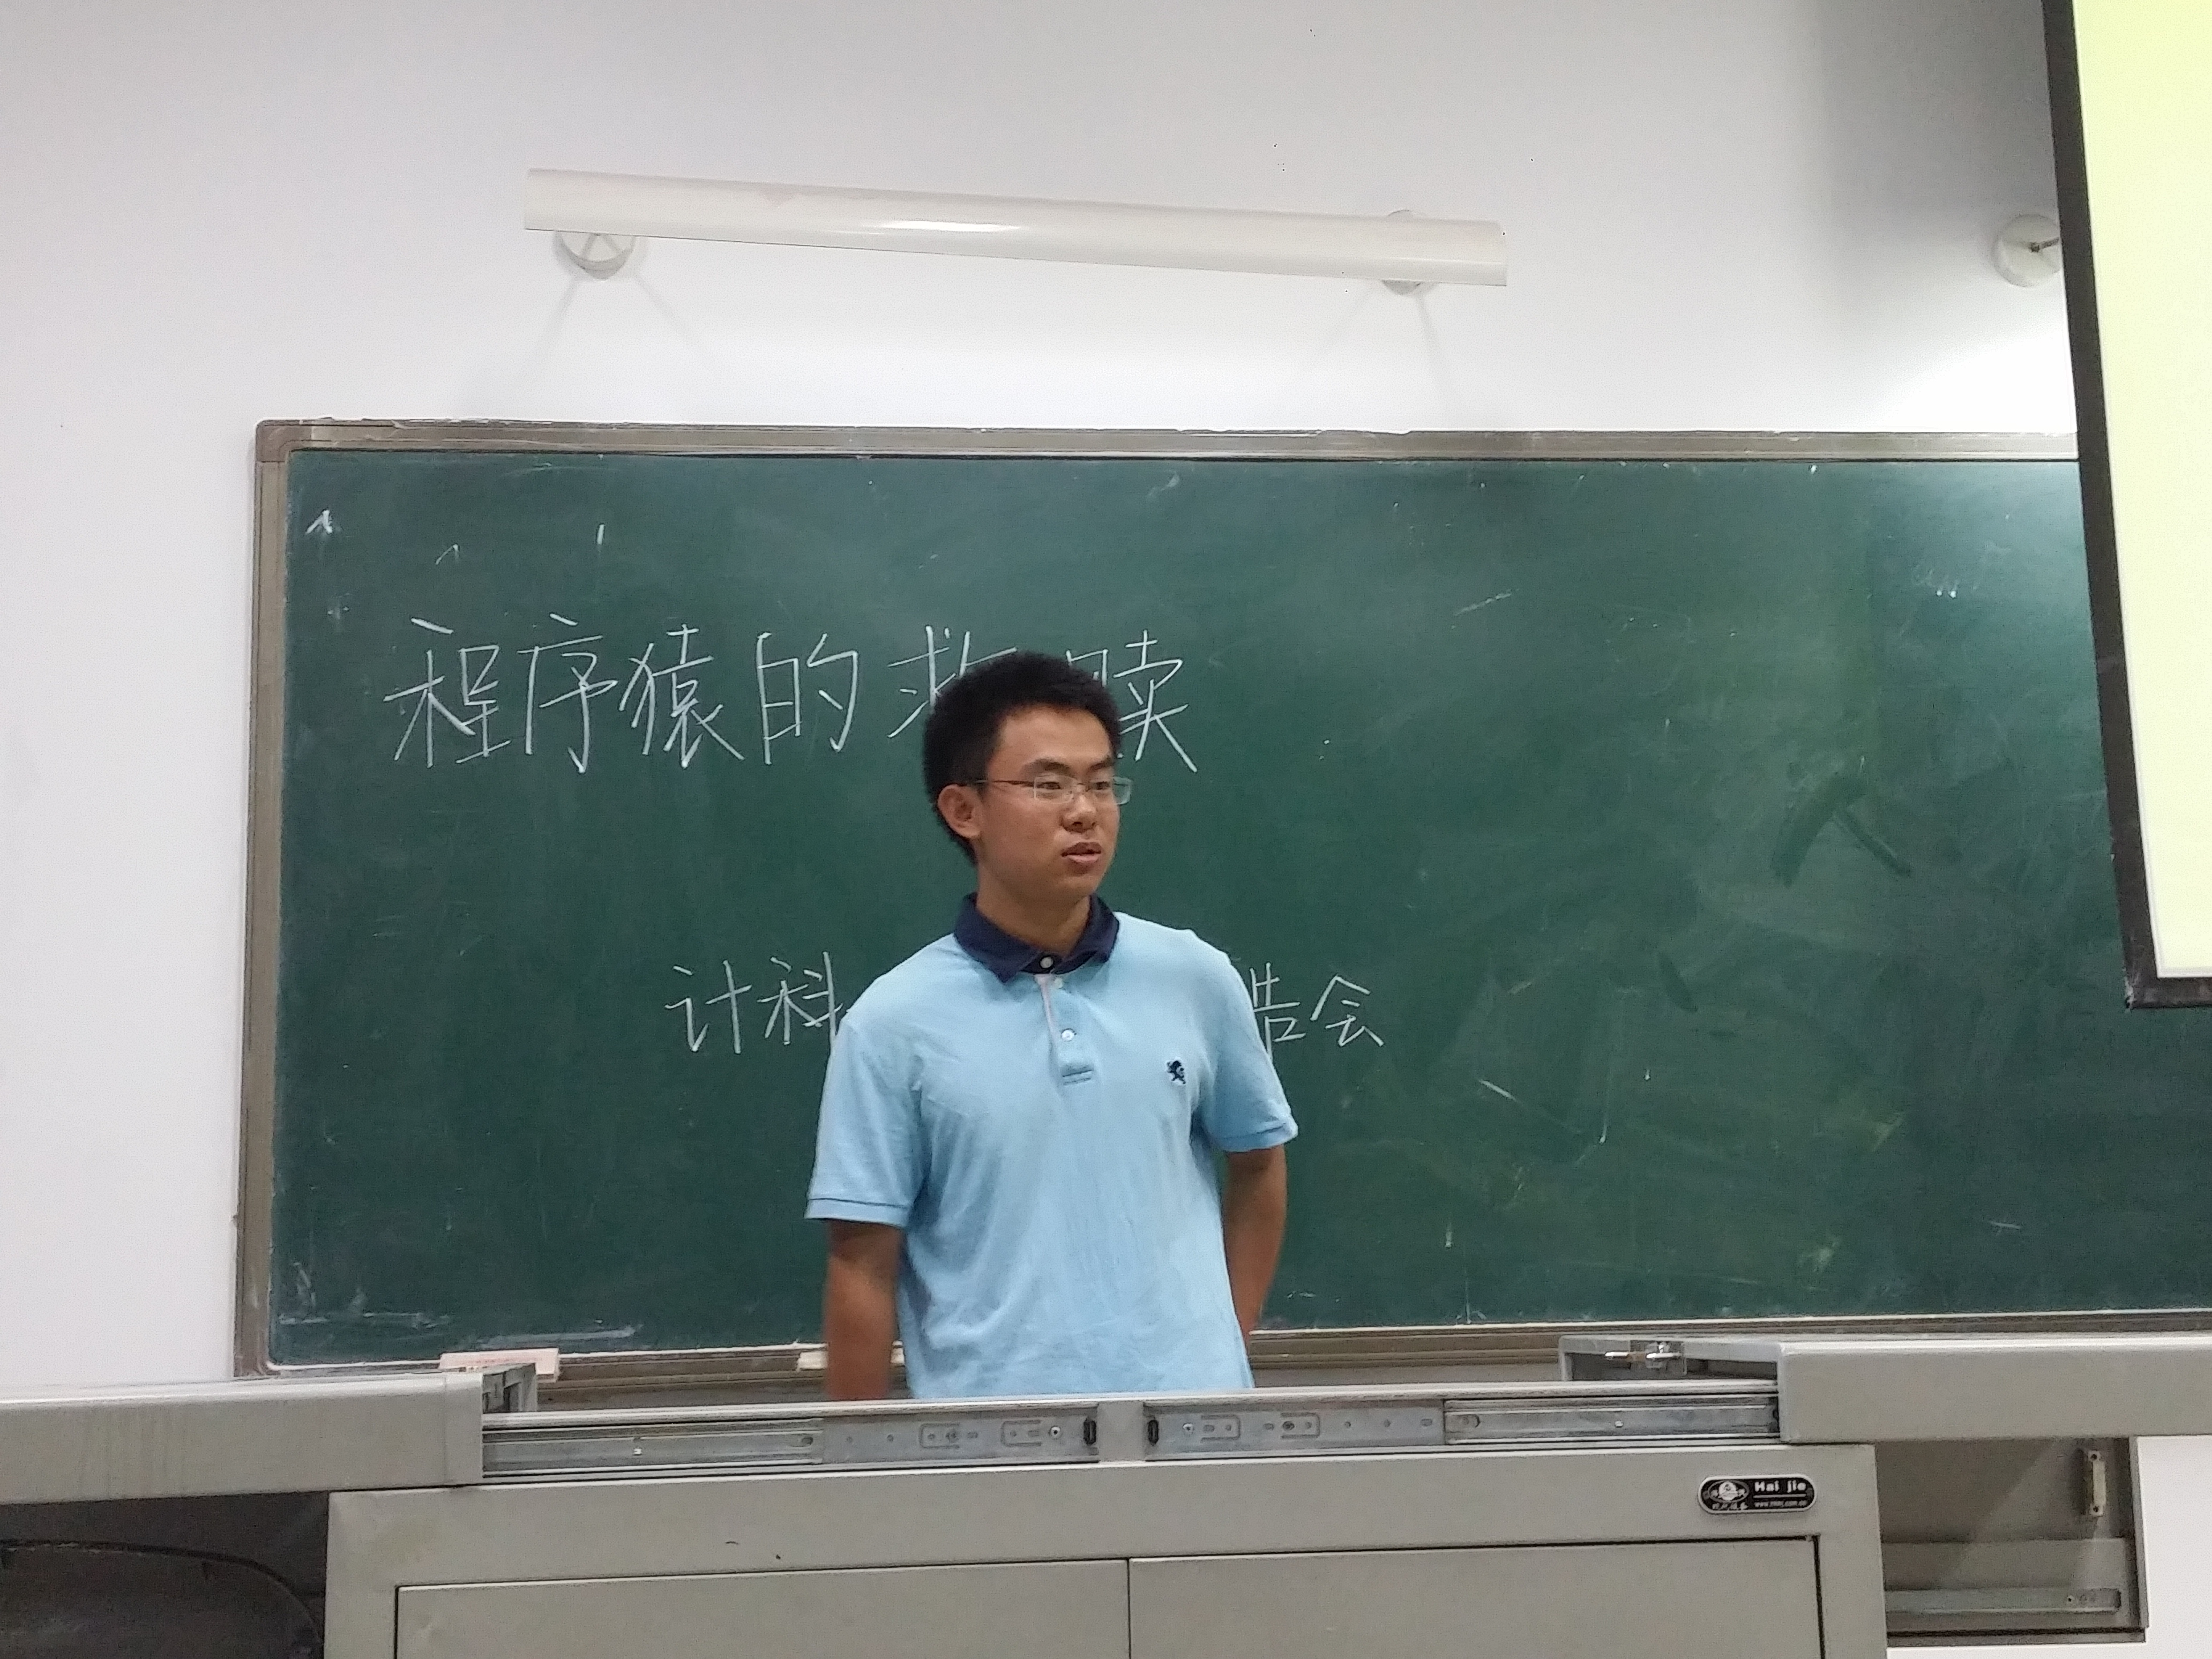 程序猿的救赎
计科 告会
Hai jie